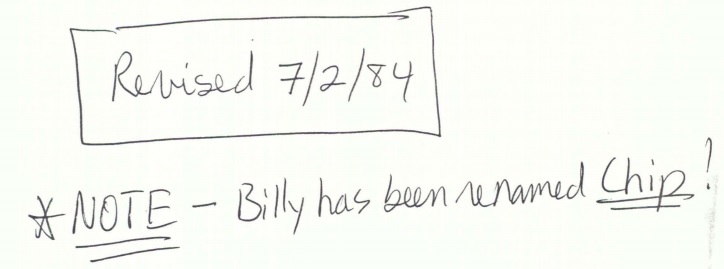 Revised 7/2/84
* NOTE - Billy has been renamed Chip!